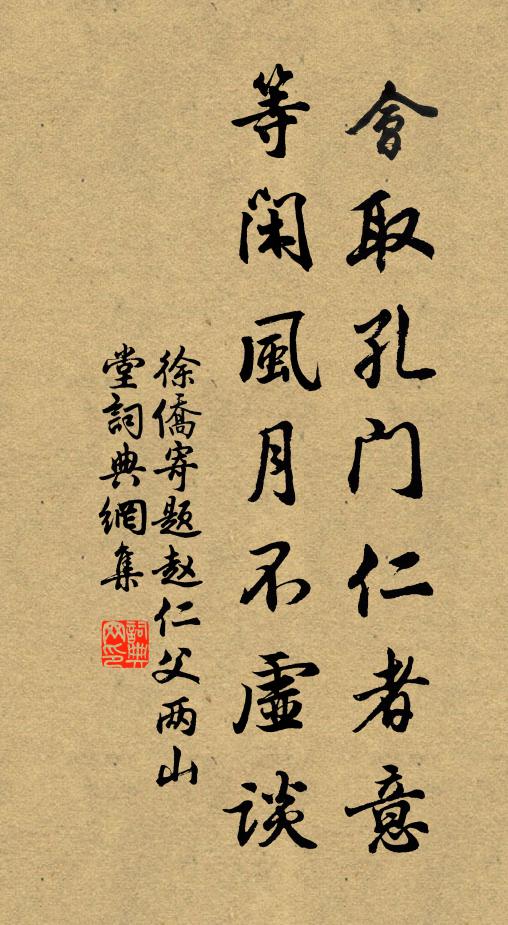 會取孔门仁者意
等闲風月不虛談
徐僑寄题赵仁父两山
堂詞典網集
詞典
网印